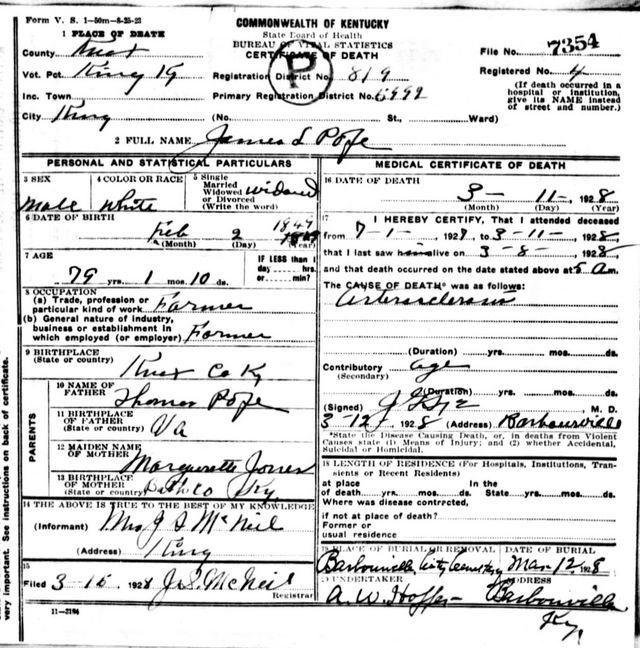 Form V. S. 1-50m-8-25-23
COMMONWEALTH OF KENTUCKY
State Board of Health
BUREAU OF VITAL STATISTICS
CERTIFICATE OF DEATH
P
1 PLACE OF DEATH
County Knox
Vot. Pct. King Ky
Inc. Town
City King
Registration District No. 819
Primary Registration District No. 6992
(No. St., Ward)
File No. 7354
Registered No. 4
(If death occurred in a
hospital or institution,
give its NAME instead
of street and number.)
2 FULL NAME James L Pope
PERSONAL AND STATISTICAL PARTICULARS
3 SEX
Male
4 COLOR OR RACE
White
5 Single
Married
Widowed
or Divorced
(Write the word)
Widowed
6 DATE OF BIRTH
Feb 2 1849
(Month) (Day) (Year)
7 AGE
79 yrs. 1 mos. 10 ds.
IF LESS than 1
day hrs.
or min?
8 OCCUPATION
(a) Trade, profession or
particular kind of work Farmer
(b) General nature of industry,
business or establishment in
which employed (or employer) Farmer
9 BIRTHPLACE
(State or country)
Knox Co Ky
PARENTS
10 NAME OF
FATHER
Thomas Pope
11 BIRTHPLACE
OF FATHER
(State or country)
Va
12 MAIDEN NAME
OF MOTHER
Margurette Jones
13 BIRTHPLACE
OF MOTHER
(State or country)
Bath Co Ky
14 THE ABOVE IS TRUE TO THE BEST OF MY KNOWLEDGE
(Informant) Mrs J S McNeil
(Address) King
15
Filed 3-15 1928 J.S. McNeil
Registrar
11-3184
MEDICAL CERTIFICATE OF DEATH
16 DATE OF DEATH
3-11-1928
(Month) (Day) (Year)
17 I HEREBY CERTIFY, That I attended deceased
from 7-1-1928 to 3-11-1928
that I last saw alive on 3-8-, 1928
and that death occurred on the date stated above at 5 am.
The CAUSE OF DEATH* was as follows:
Arteriosclerosis
(Duration) yrs. mos. ds.
Contributory age
(Secondary)
(Duration) yrs. mos. ds.
(Signed) M. D.
3-12 1928 (Address) Barbourville
*State the Disease Causing Death, or, in deaths from Violent
Causes state (1) Means of Injury; and (2) whether Accidental,
Suicidal or Homicidal.
18 LENGTH OF RESIDENCE (For Hospitals, Institutions, Tran-
sients or Recent Residents)
at place In the
of death yrs. mos. ds. State yrs. mos. ds.
Where was disease contrected,
if not at place of death?
Former or
usual residence
19 PLACE OF BURIAL OR REMOVAL
Barbourville City Cemetery
DATE OF BURIAL
Mar 12 1928
20 UNDERTAKER
A. W. Hopper
ADDRESS
Barbourville
Ky.
very important. See instructions on back of certificate.